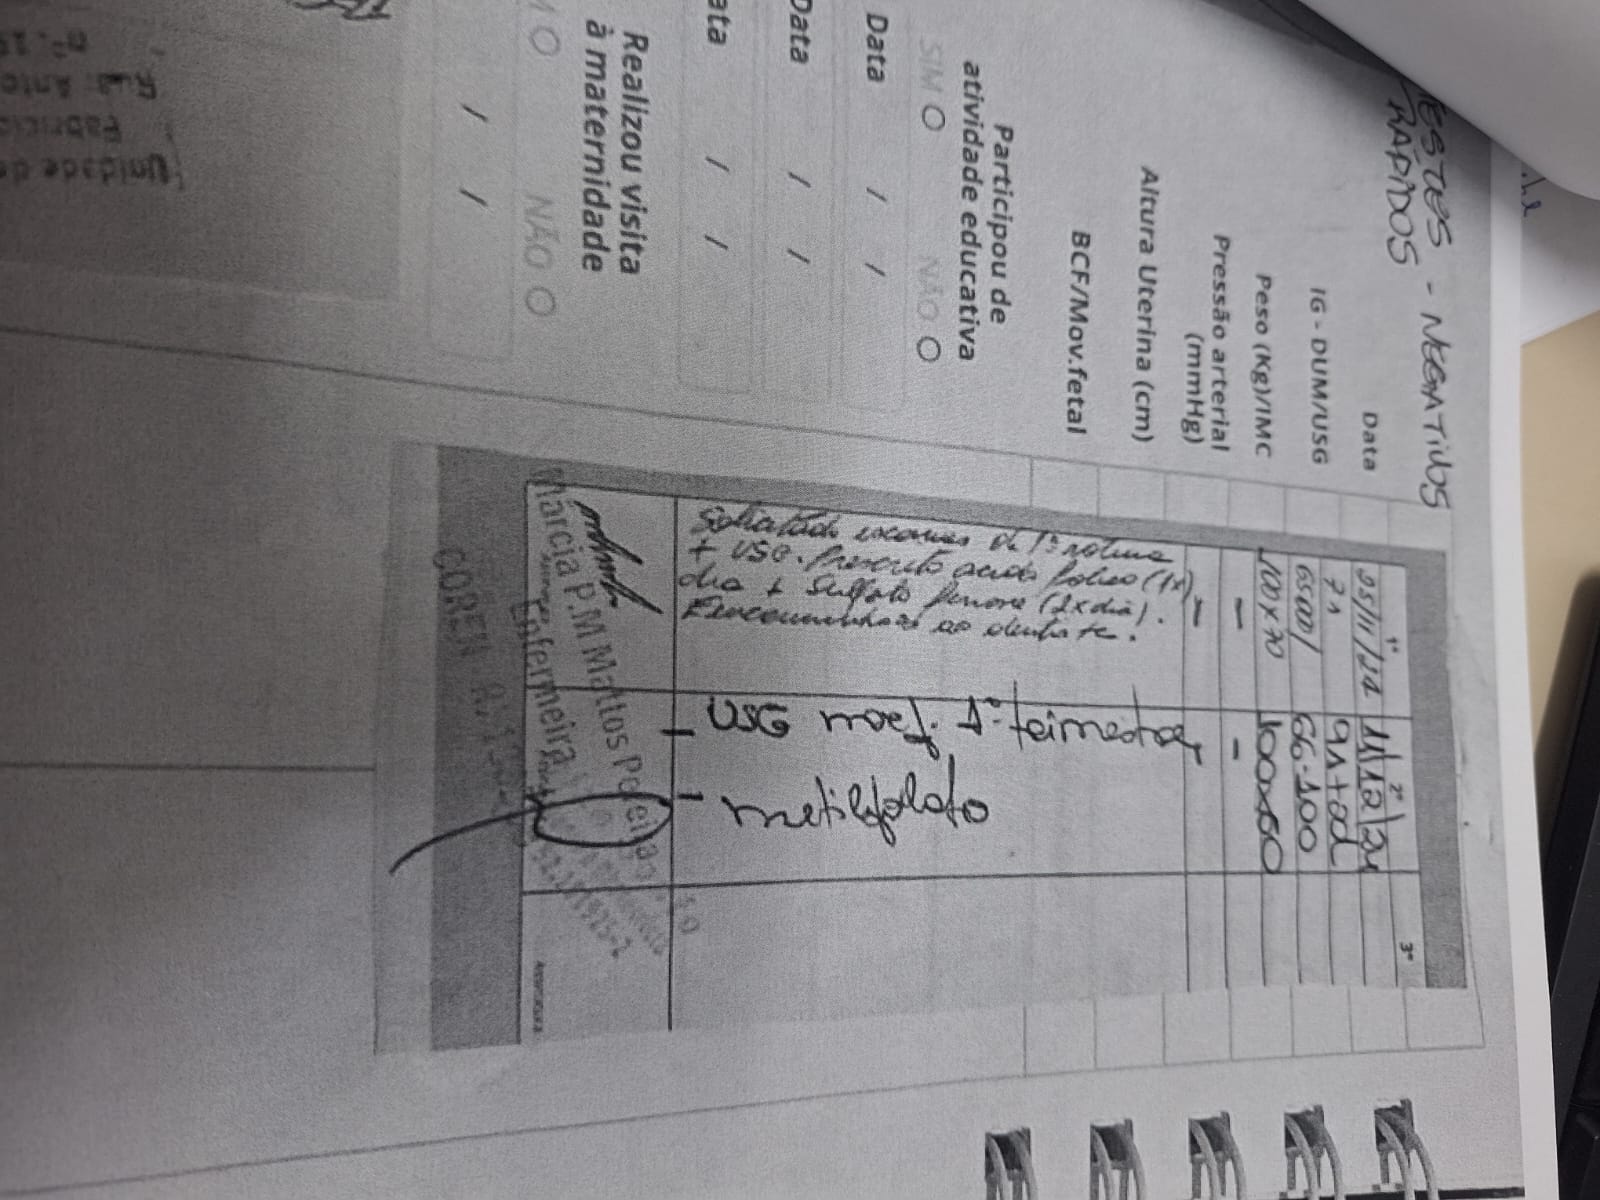 TESTES - NEGATIVOS
RÁPIDOS
1º
2º
3º
Data
25/11/21
11/12/21
IG - DUM/USG
7s
9s+2d
Peso (Kg)/IMC
65.00/
66.100
Pressão arterial
(mmHg)
100x70
100x60
Altura Uterina (cm)
-
-
BCF/Mov.fetal
-
Participou de
atividade educativa
SIM NÃO
Solicitado exames de 1ª rotina
+ USG. Prescrito acido folico (1x)
dia + Sulfato ferroso (2x dia).
Encaminhada ao dentista.
- USG morf. 1º trimestre
- metilfolato
Data / /
Data / /
ata / /
Realizou visita
à maternidade
NÃO
/ /
Marcia P.M Mattos
Enfermeira
COREN RJ
Assinatura
Unidade de
Fabrici
Rua: Anto
nº. 19